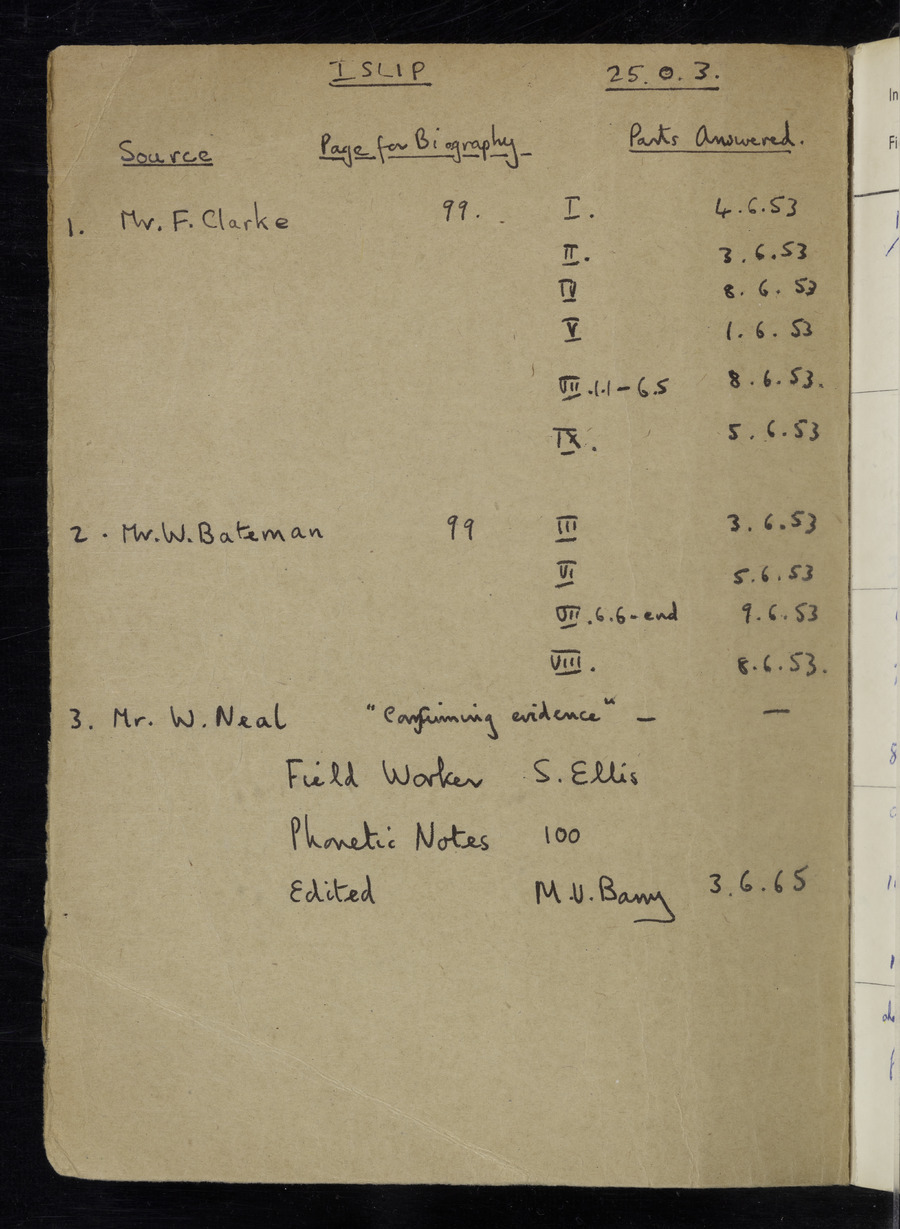 ISLIP 25.O.3.
Source Page for Biography Parts Answered.
1. Mr. F. Clarke 99. I. 4.6.53
II. 3.6.53
IV 8.6.53
V 1.6.53
VII.1.1-6.5 8.6.53.
IX. 5.6.53
2. Mr. W. Bateman 99 III 3.6.53
VI 5.6.53
VII.6.6-end 9.6.53
VIII. 8.6.53.
3. Mr. W. Neal "Confirming evidence" — —
Field Worker S. Ellis
Phonetic Notes 100
Edited M.V. Barry 3.6.65
In
Fi